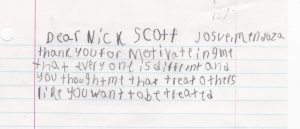 Dear Nick Scott Josue Mendoza
thank you for Motivateing me
that every one is different and
you thought me that treat others
like you want to be treated